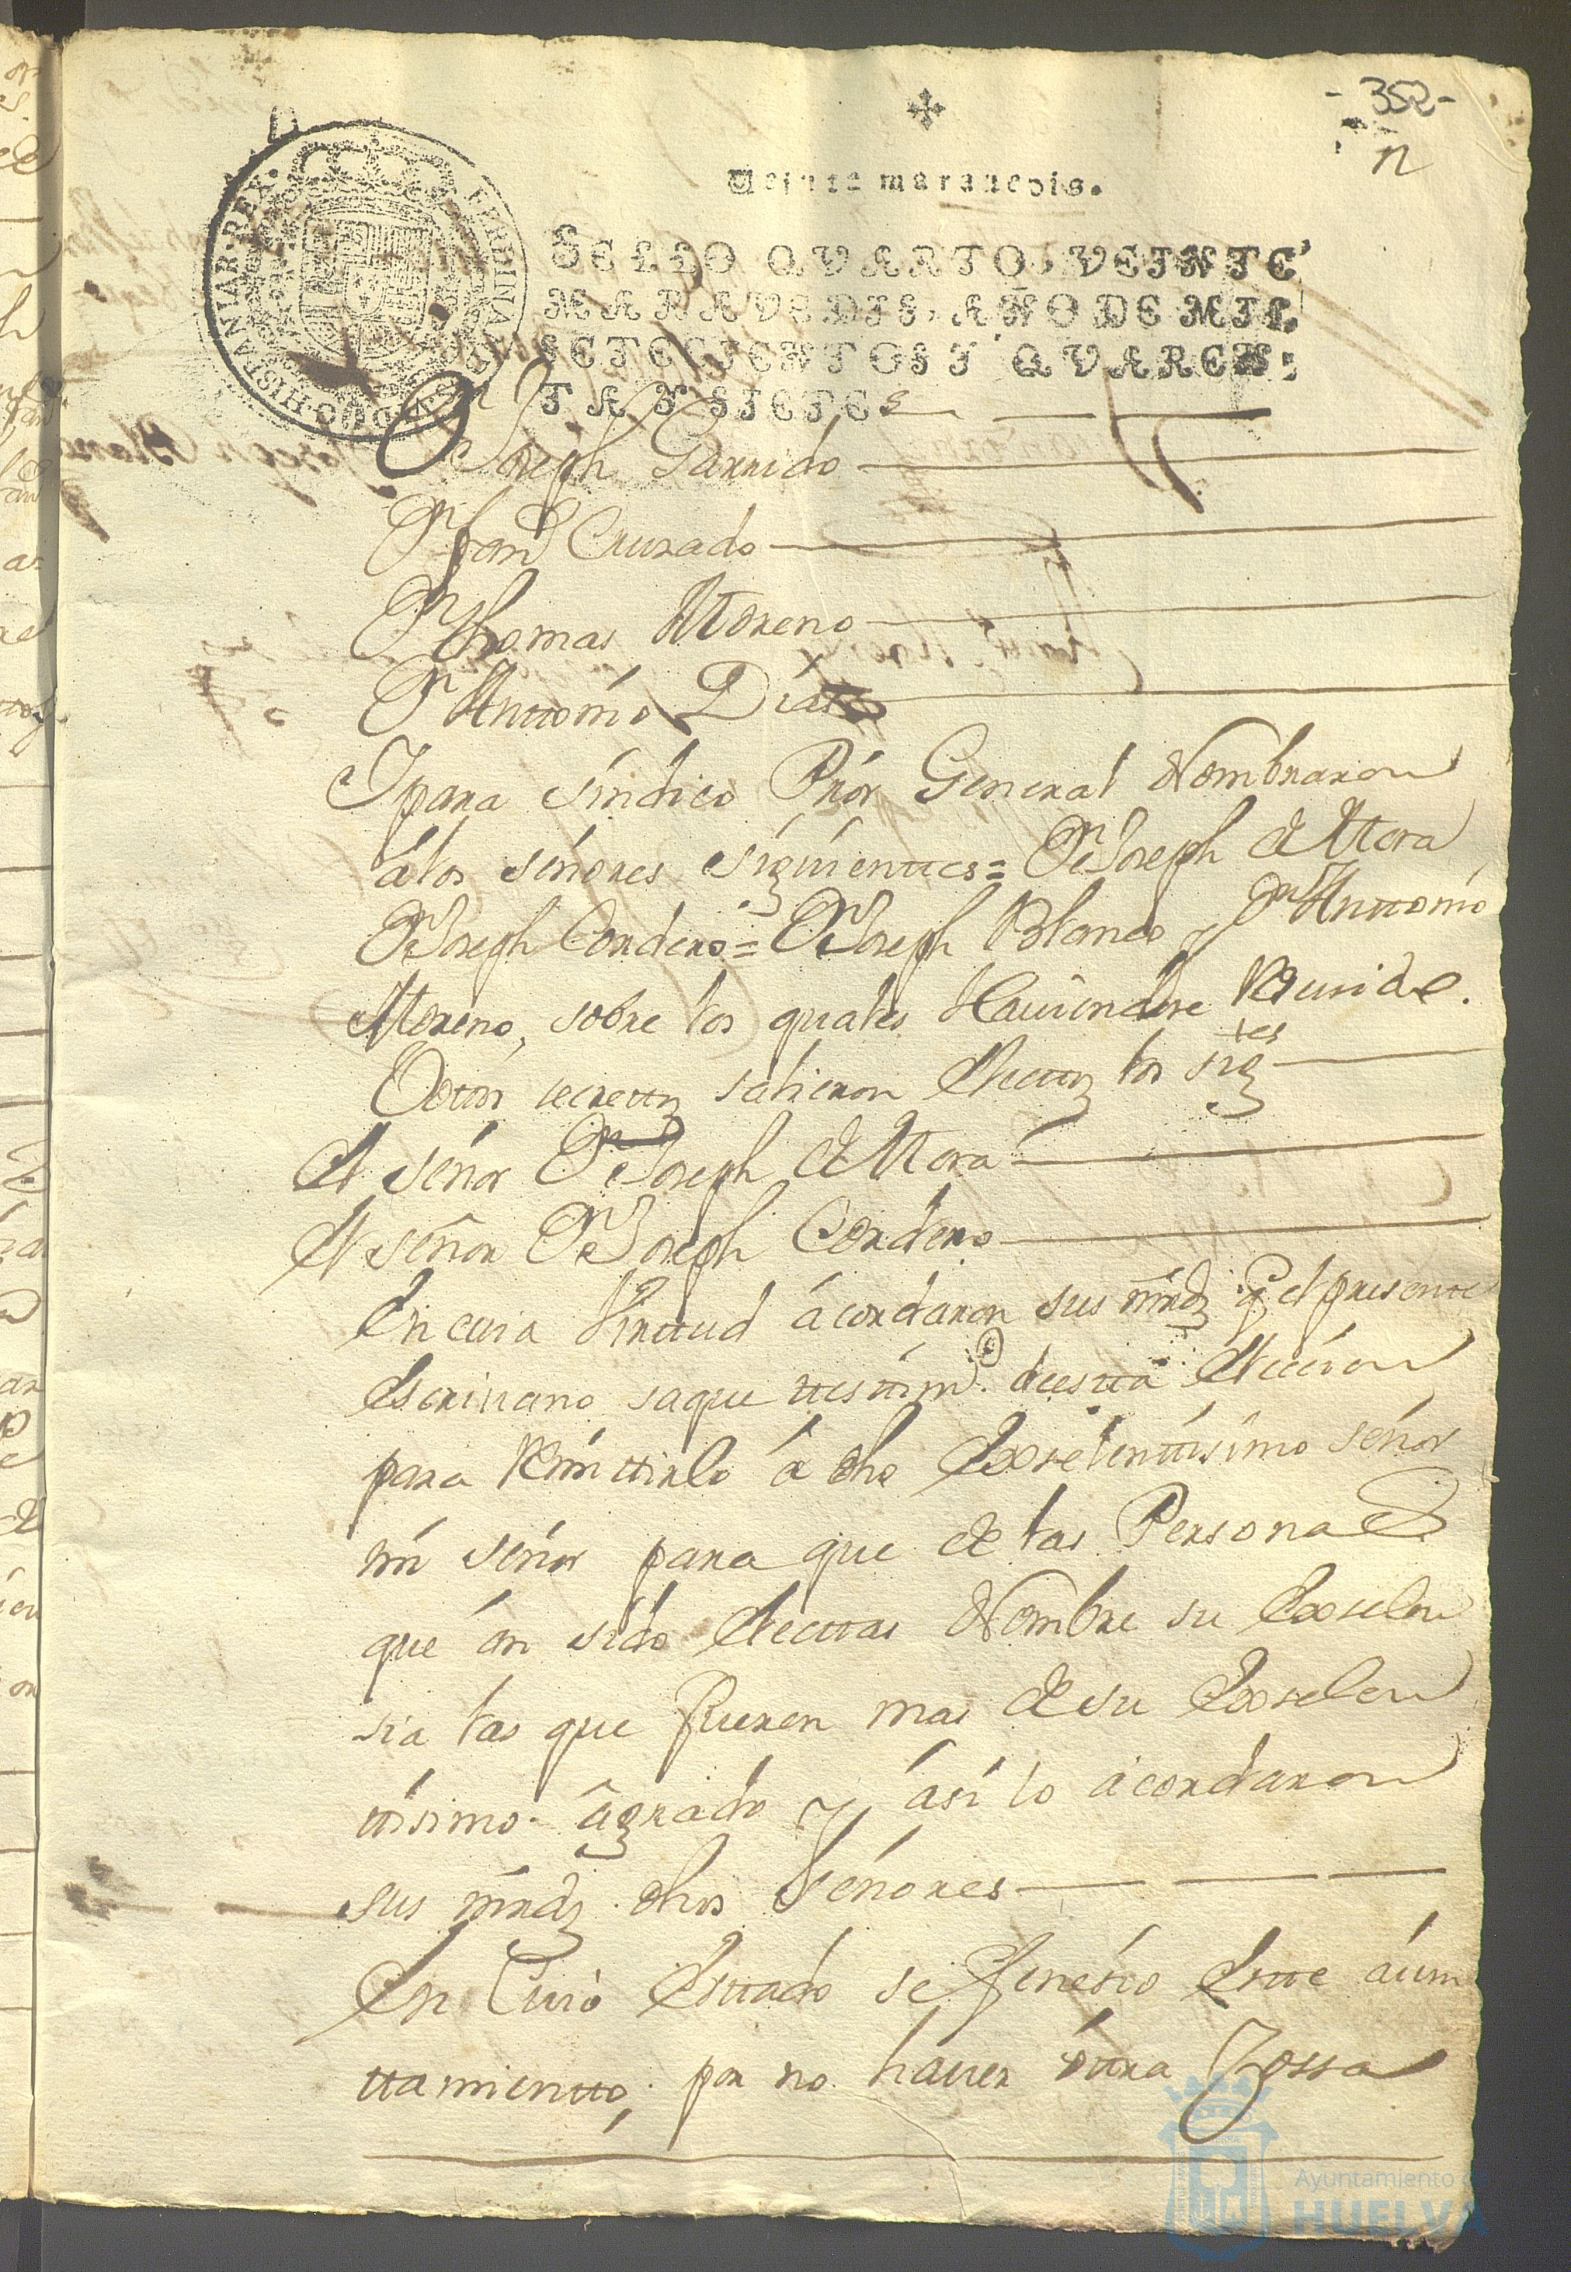 -352-
n
Veinte marauedis.
SELLO QVARTO, VEINTE
MARAVEDIS, AÑO DE MIL
SETECIENTOS Y QVAREN-
TA Y SIETE
HISPANIAR·REX·
Dn Joseph Garrido
Dn fando Cruzado
Dn thomas Moreno
Dn Anttonio Dias
Y para síndico Prór General Nombraron
á los señores siguienttes = Dn Joseph de Mora
Dn Joseph Cordero = Dn Joseph Blanco y Dn Anttonio
Moreno, sobre los quales Hauiendose Reciuido.
Votos secrettos salieron Electtos los sigtes
El señor Dn Joseph de Mora
El señor Dn Joseph Cordero
En cuia Virttud ácordaron sus mrds q el presentte
Escriuano saque ttesttimo. de estta Elección
para Remittirlo á dho Exselenttísimo señor
mi señor para que de las Personas
que án sido Electtas Nombre su Exselen
sia las que fueren mas de su Exselen
ttísimo ágrado y ási lo ácordaron
sus mrds dhos Señores
En Cuio Esttado se fenesio Estte áiun
ttamientto, por no háuer óttra Cossa
Ayuntamiento de
HUELVA